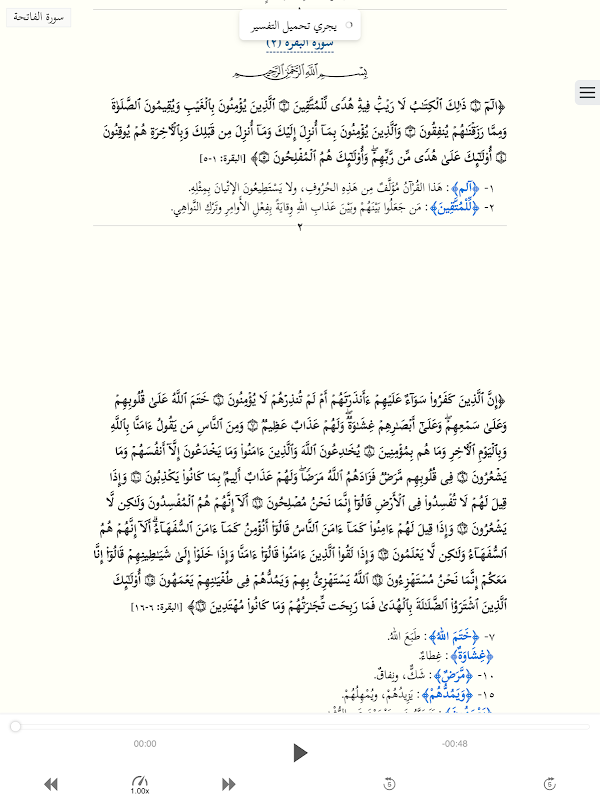 سورة الفاتحة
يجري تحميل التفسير
سورة البقرة (٢)
بِسْمِ اللَّهِ الرَّحْمَٰنِ الرَّحِيمِ
﴿الٓمٓ ۝١ ذَٰلِكَ ٱلْكِتَٰبُ لَا رَيْبَۛ فِيهِۛ هُدًى لِّلْمُتَّقِينَ ۝٢ ٱلَّذِينَ يُؤْمِنُونَ بِٱلْغَيْبِ وَيُقِيمُونَ ٱلصَّلَوٰةَ
وَمِمَّا رَزَقْنَٰهُمْ يُنفِقُونَ ۝٣ وَٱلَّذِينَ يُؤْمِنُونَ بِمَآ أُنزِلَ إِلَيْكَ وَمَآ أُنزِلَ مِن قَبْلِكَ وَبِٱلْأٓخِرَةِ هُمْ يُوقِنُونَ
۝٤ أُوْلَٰٓئِكَ عَلَىٰ هُدًى مِّن رَّبِّهِمْۖ وَأُوْلَٰٓئِكَ هُمُ ٱلْمُفْلِحُونَ ۝٥﴾ [البقرة: ١-٥]
١- ﴿الٓمٓ﴾: هَذا القُرْآنُ مُؤَلَّفٌ مِن هَذِهِ الحُرُوفِ، ولا يَسْتَطِيعُونَ الإتْيانَ بِمِثْلِهِ.
٢- ﴿لِّلْمُتَّقِينَ﴾: مَن جَعَلُوا بَيْنَهُمْ وبَيْنَ عَذابِ اللهِ وِقايَةً بِفِعْلِ الأَوامِرِ وتَرْكِ النَّواهِي.
٢
﴿إِنَّ ٱلَّذِينَ كَفَرُواْ سَوَآءٌ عَلَيْهِمْ ءَأَنذَرْتَهُمْ أَمْ لَمْ تُنذِرْهُمْ لَا يُؤْمِنُونَ ۝٦ خَتَمَ ٱللَّهُ عَلَىٰ قُلُوبِهِمْ
وَعَلَىٰ سَمْعِهِمْۖ وَعَلَىٰٓ أَبْصَٰرِهِمْ غِشَٰوَةٌۖ وَلَهُمْ عَذَابٌ عَظِيمٌ ۝٧ وَمِنَ ٱلنَّاسِ مَن يَقُولُ ءَامَنَّا بِٱللَّهِ
وَبِٱلْيَوْمِ ٱلْأٓخِرِ وَمَا هُم بِمُؤْمِنِينَ ۝٨ يُخَٰدِعُونَ ٱللَّهَ وَٱلَّذِينَ ءَامَنُواْ وَمَا يَخْدَعُونَ إِلَّآ أَنفُسَهُمْ وَمَا
يَشْعُرُونَ ۝٩ فِي قُلُوبِهِم مَّرَضٌ فَزَادَهُمُ ٱللَّهُ مَرَضًاۖ وَلَهُمْ عَذَابٌ أَلِيمُۢ بِمَا كَانُواْ يَكْذِبُونَ ۝١٠ وَإِذَا
قِيلَ لَهُمْ لَا تُفْسِدُواْ فِي ٱلْأَرْضِ قَالُوٓاْ إِنَّمَا نَحْنُ مُصْلِحُونَ ۝١١ أَلَآ إِنَّهُمْ هُمُ ٱلْمُفْسِدُونَ وَلَٰكِن لَّا
يَشْعُرُونَ ۝١٢ وَإِذَا قِيلَ لَهُمْ ءَامِنُواْ كَمَآ ءَامَنَ ٱلنَّاسُ قَالُوٓاْ أَنُؤْمِنُ كَمَآ ءَامَنَ ٱلسُّفَهَآءُۗ أَلَآ إِنَّهُمْ هُمُ
ٱلسُّفَهَآءُ وَلَٰكِن لَّا يَعْلَمُونَ ۝١٣ وَإِذَا لَقُواْ ٱلَّذِينَ ءَامَنُواْ قَالُوٓاْ ءَامَنَّا وَإِذَا خَلَوْاْ إِلَىٰ شَيَٰطِينِهِمْ قَالُوٓاْ إِنَّا
مَعَكُمْ إِنَّمَا نَحْنُ مُسْتَهْزِءُونَ ۝١٤ ٱللَّهُ يَسْتَهْزِئُ بِهِمْ وَيَمُدُّهُمْ فِي طُغْيَٰنِهِمْ يَعْمَهُونَ ۝١٥ أُوْلَٰٓئِكَ
ٱلَّذِينَ ٱشْتَرَوُاْ ٱلضَّلَٰلَةَ بِٱلْهُدَىٰ فَمَا رَبِحَت تِّجَٰرَتُهُمْ وَمَا كَانُواْ مُهْتَدِينَ ۝١٦﴾ [البقرة: ٦-١٦]
٧- ﴿خَتَمَ اللهُ﴾: طَبَعَ اللهُ.
﴿غِشَاوَةٌ﴾: غِطاءٌ.
١٠- ﴿مَّرَضٌ﴾: شَكٌّ، ونِفاقٌ.
١٥- ﴿وَيَمُدُّهُمْ﴾: يَزِيدُهُمْ، ويُمْهِلُهُمْ.
00:00
-00:48
1.00x
5
5